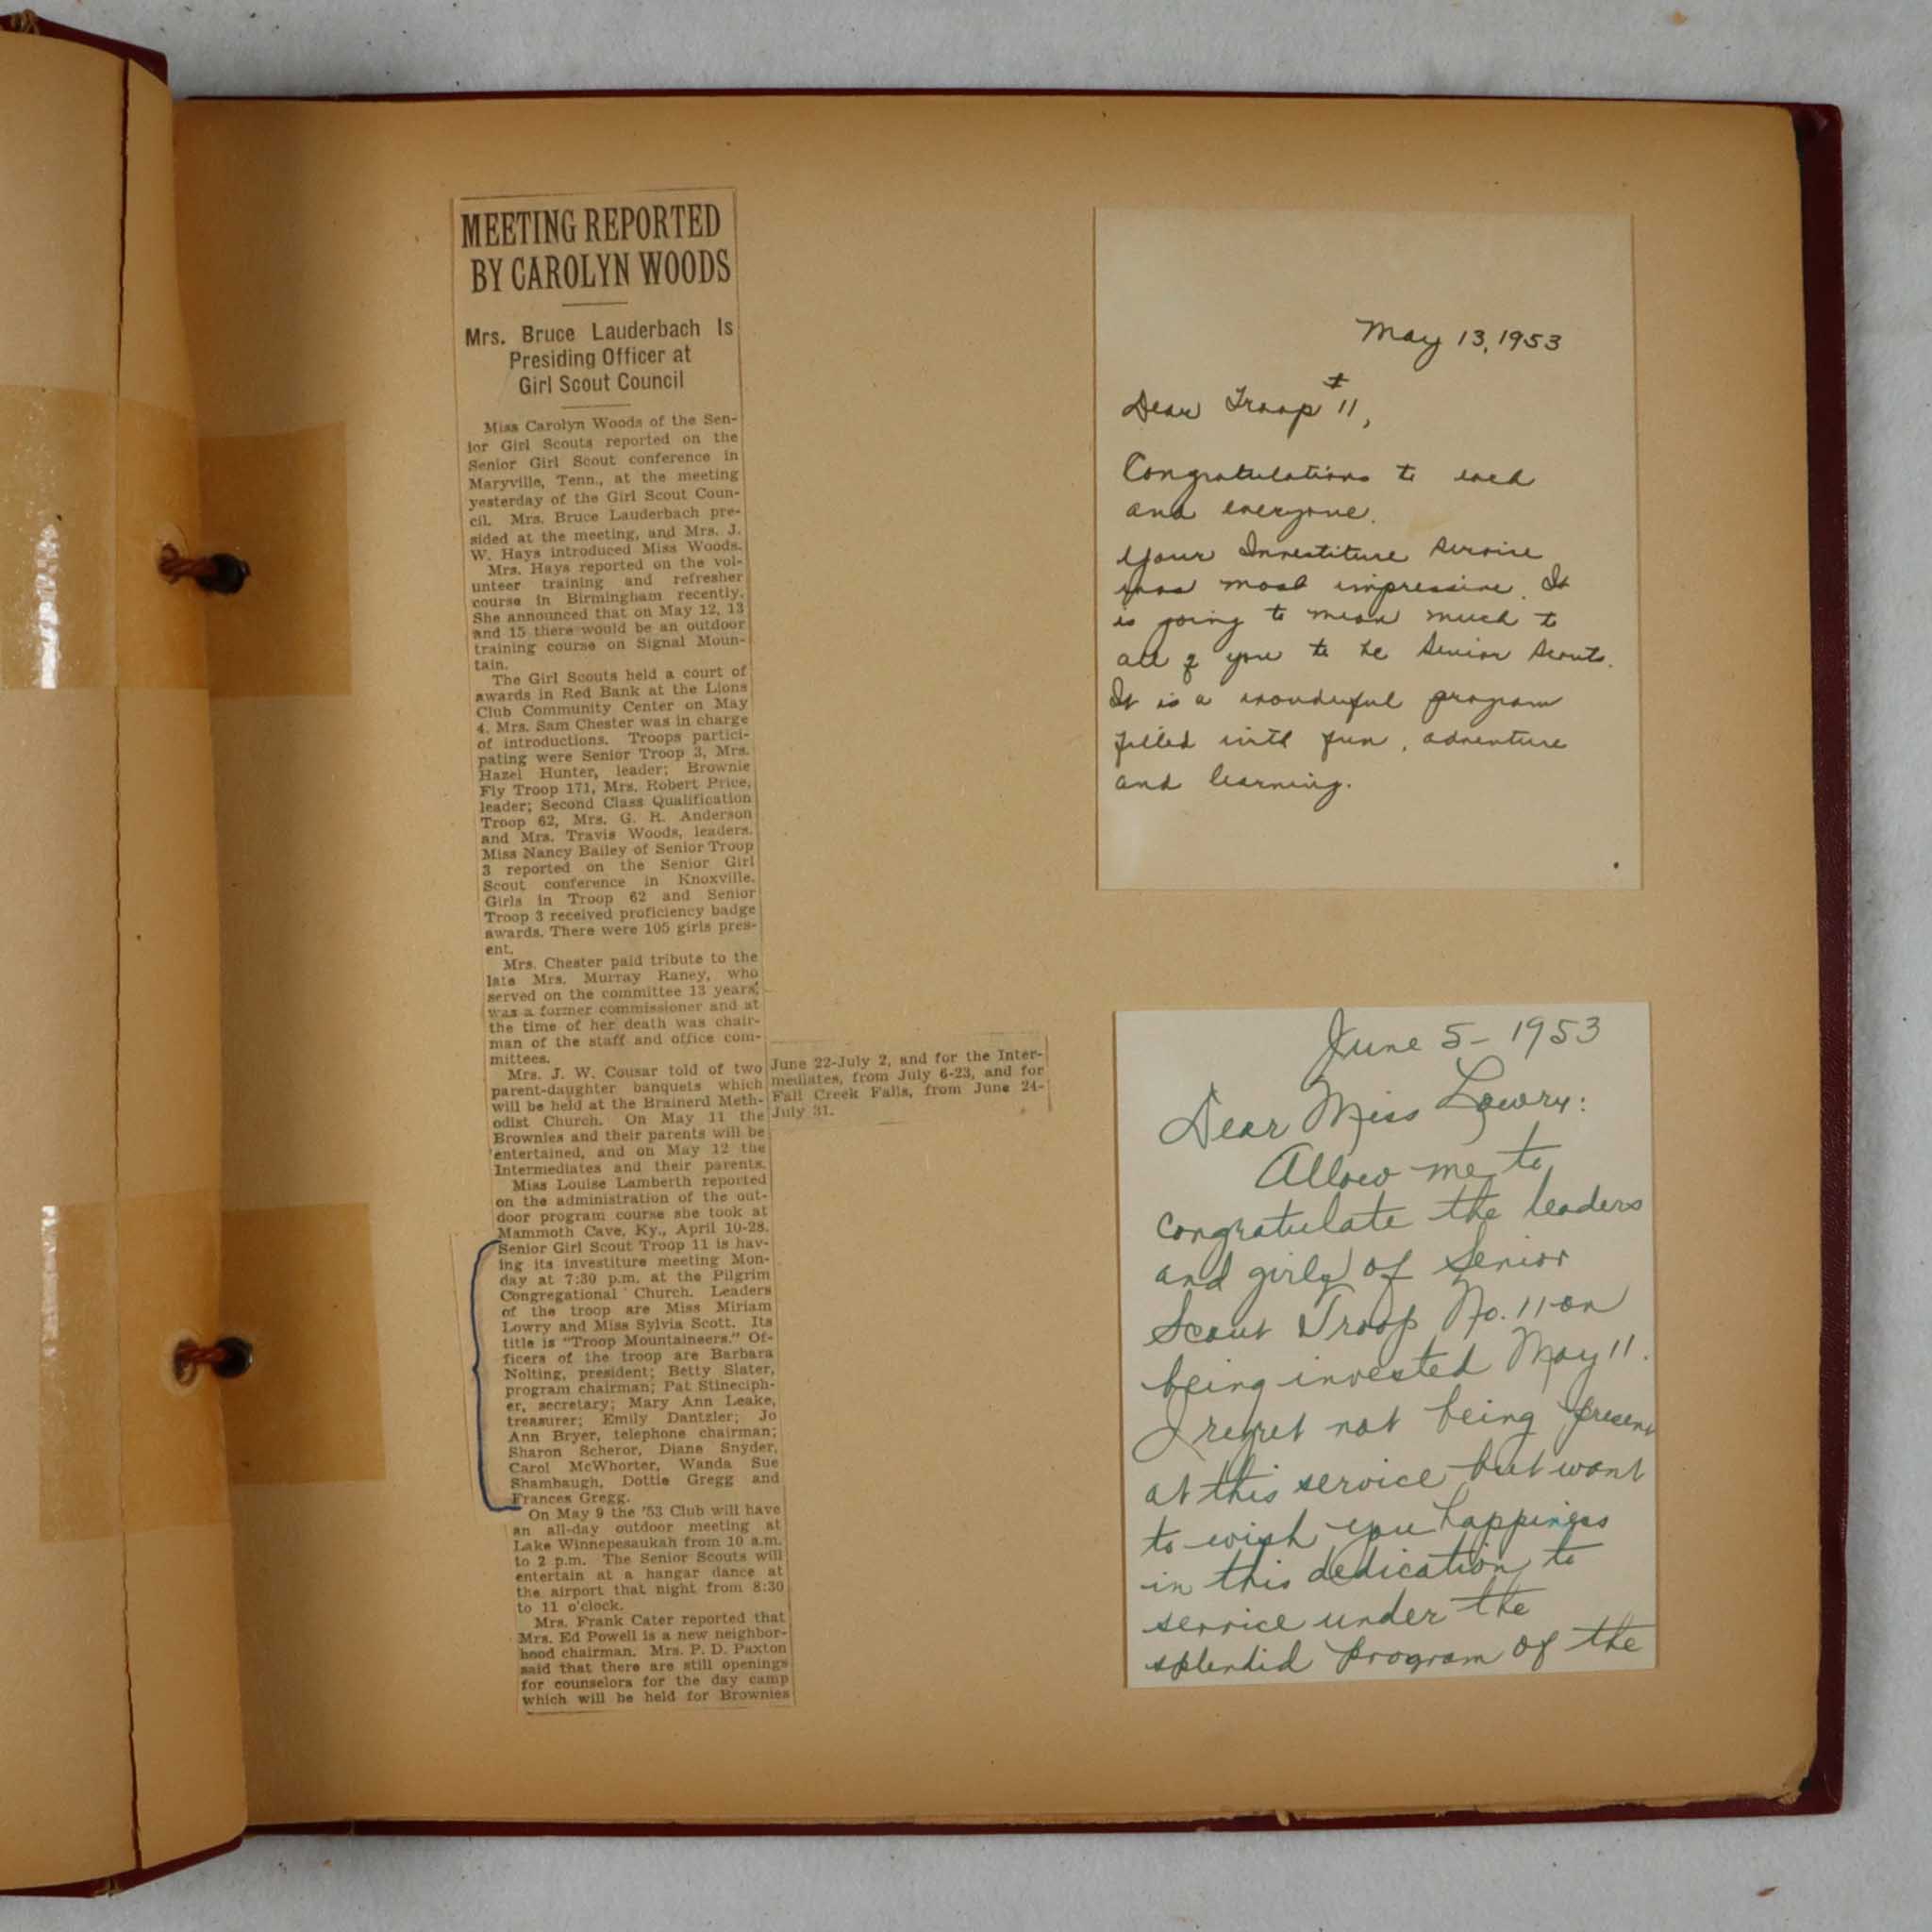 MEETING REPORTED
BY CAROLYN WOODS
Mrs. Bruce Lauderbach Is
Presiding Officer at
Girl Scout Council
Miss Carolyn Woods of the Sen-
ior Girl Scouts reported on the
Senior Girl Scout conference in
Maryville, Tenn., at the meeting
yesterday of the Girl Scout Coun-
cil. Mrs. Bruce Lauderbach pre-
sided at the meeting, and Mrs. J.
W. Hays introduced Miss Woods.
Mrs. Hays reported on the vol-
unteer training and refresher
course in Birmingham recently.
She announced that on May 12, 13
and 15 there would be an outdoor
training course on Signal Moun-
tain.
The Girl Scouts held a court of
awards in Red Bank at the Lions
Club Community Center on May
4. Mrs. Sam Chester was in charge
of introductions. Troops partici-
pating were Senior Troop 3, Mrs.
Hazel Hunter, leader; Brownie
Fly Troop 171, Mrs. Robert Price,
leader; Second Class Qualification
Troop 62, Mrs. G. R. Anderson
and Mrs. Travis Woods, leaders.
Miss Nancy Bailey of Senior Troop
3 reported on the Senior Girl
Scout conference in Knoxville.
Girls in Troop 62 and Senior
Troop 3 received proficiency badge
awards. There were 105 girls pres-
ent.
Mrs. Chester paid tribute to the
late Mrs. Murray Raney, who
served on the committee 13 years,
was a former commissioner and at
the time of her death was chair-
man of the staff and office com-
mittees.
Mrs. J. W. Cousar told of two
parent-daughter banquets which
will be held at the Brainerd Meth-
odist Church. On May 11 the
Brownies and their parents will be
entertained, and on May 12 the
Intermediates and their parents.
Miss Louise Lamberth reported
on the administration of the out-
door program course she took at
Mammoth Cave, Ky., April 10-28.
Senior Girl Scout Troop 11 is hav-
ing its investiture meeting Mon-
day at 7:30 p.m. at the Pilgrim
Congregational Church. Leaders
of the troop are Miss Miriam
Lowry and Miss Sylvia Scott. Its
title is "Troop Mountaineers." Of-
ficers of the troop are Barbara
Nolting, president; Betty Slater,
program chairman; Pat Stineciph-
er, secretary; Mary Ann Leake,
treasurer; Emily Dantzler; Jo
Ann Bryer, telephone chairman;
Sharon Scheror, Diane Snyder,
Carol McWhorter, Wanda Sue
Shambaugh, Dottie Gregg and
Frances Gregg.
On May 9 the '53 Club will have
an all-day outdoor meeting at
Lake Winnepesaukah from 10 a.m.
to 2 p.m. The Senior Scouts will
entertain at a hangar dance at
the airport that night from 8:30
to 11 o'clock.
Mrs. Frank Cater reported that
Mrs. Ed Powell is a new neighbor-
hood chairman. Mrs. P. D. Paxton
said that there are still openings
for counselors for the day camp
which will be held for Brownies
June 22-July 2, and for the Inter-
mediates, from July 6-23, and for
Fall Creek Falls, from June 24-
July 31.
May 13, 1953
Dear Troop # 11,
Congratulations to each
and everyone.
Your Investiture Service
was most impressive. It
is going to mean much to
all of you to be Senior Scouts.
It is a wonderful program
filled with fun, adventure
and learning.
June 5 - 1953
Dear Miss Lowry:
Allow me to
congratulate the leaders
and girls of Senior
Scout Troop No. 11 on
being invested May 11.
I regret not being present
at this service but want
to wish you happiness
in this dedication to
service under the
splendid program of the